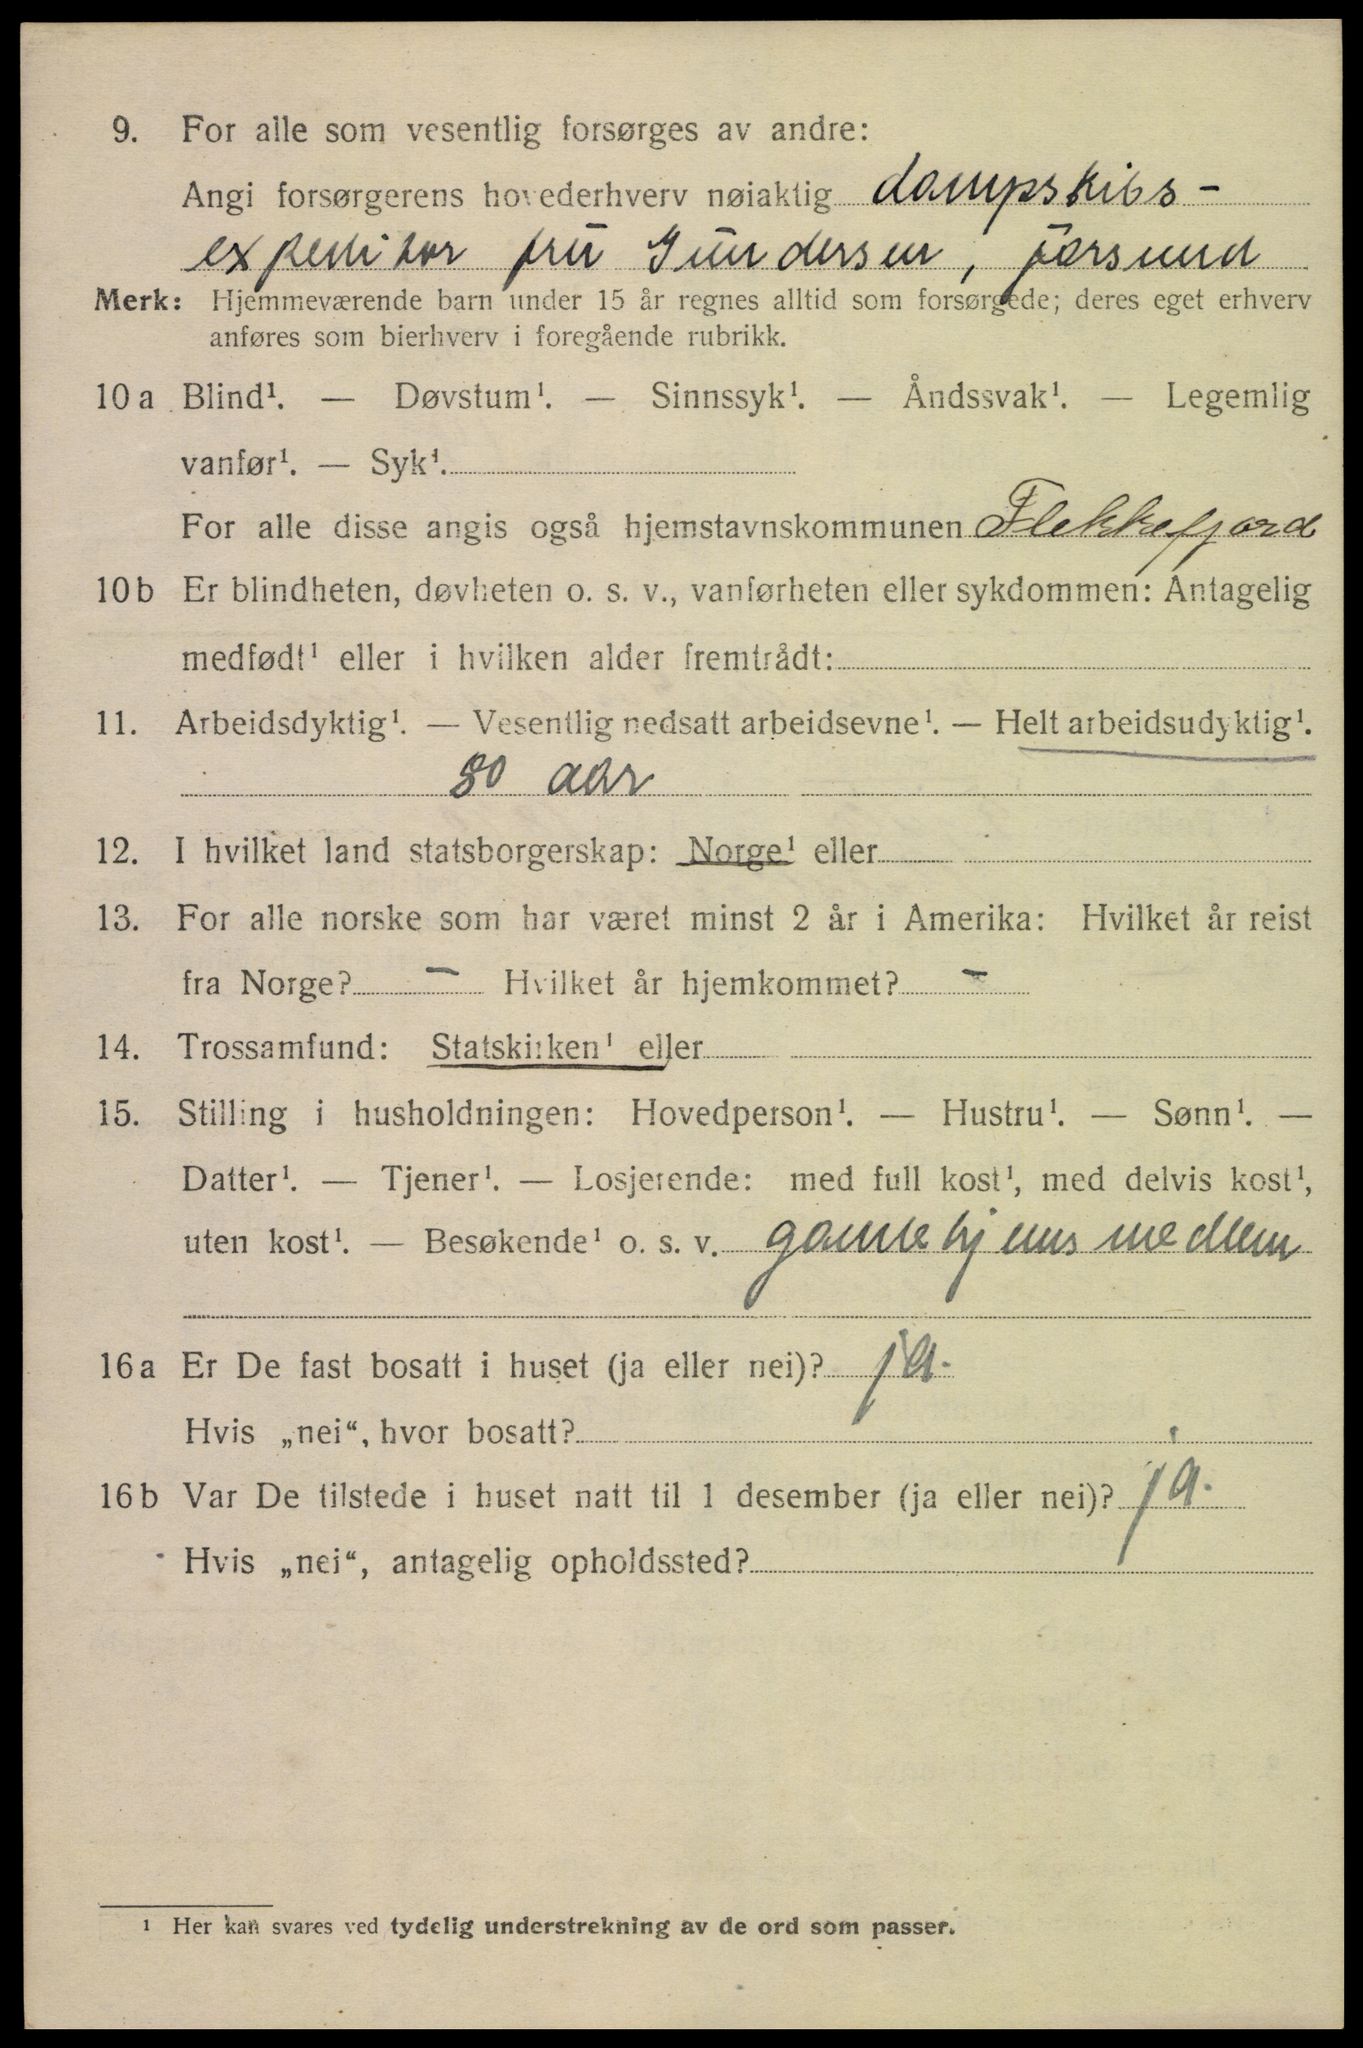 9. For alle som vesentlig forsørges av andre:
Angi forsørgerens hovederhverv nøiaktig dampskibs-
expeditor fru Gundersen, Farsund
Merk: Hjemmeværende barn under 15 år regnes alltid som forsørgede; deres eget erhverv
anføres som bierhverv i foregående rubrikk.
10a Blind¹. — Døvstum¹. — Sinnssyk¹. — Åndssvak¹. — Legemlig
vanfør¹. — Syk¹.
For alle disse angis også hjemstavnskommunen Flekkefjord
10b Er blindheten, døvheten o. s. v., vanførheten eller sykdommen: Antagelig
medfødt¹ eller i hvilken alder fremtrådt:
11. Arbeidsdyktig¹. — Vesentlig nedsatt arbeidsevne¹. — Helt arbeidsudyktig¹.
80 aar
12. I hvilket land statsborgerskap: Norge¹ eller
13. For alle norske som har været minst 2 år i Amerika: Hvilket år reist
fra Norge? — Hvilket år hjemkommet? —
14. Trossamfund: Statskirken¹ eller
15. Stilling i husholdningen: Hovedperson¹. — Hustru¹. — Sønn¹. —
Datter¹. — Tjener¹. — Losjerende: med full kost¹, med delvis kost¹,
uten kost¹. — Besøkende¹ o. s. v. gamlehjemsmedlem
16a Er De fast bosatt i huset (ja eller nei)? ja.
Hvis „nei“, hvor bosatt?
16b Var De tilstede i huset natt til 1 desember (ja eller nei)? ja.
Hvis „nei“, antagelig opholdssted?
¹ Her kan svares ved tydelig understrekning av de ord som passer.